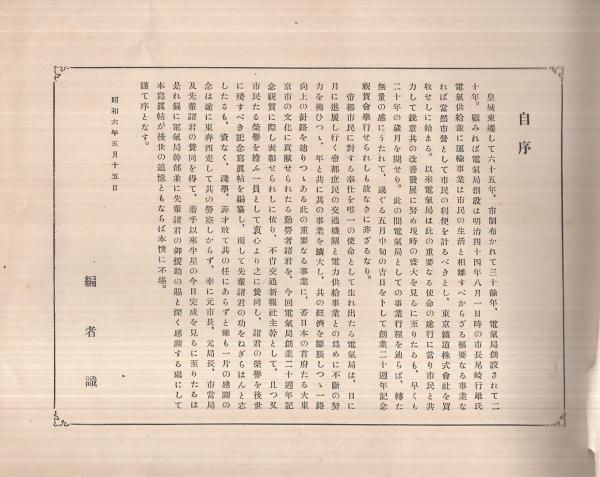 自序
皇城東遷して六十五年、市制布かれて三十餘年、電氣局創設されて二
十年。顧みれば電氣局創設は明治四十四年八月一日時の市長尾崎行雄氏
電氣供給並に運輸事業は市民の生活と相離すべからざる樞要なる事業な
れば當然市營として市民の利便を計るべきとし、東京鐵道株式會社を買
收せしに始まる。以來電氣局は此の重要なる使命の遂行に當り市民と共
力して鋭意其の改善發展に努め現時の盛大を見るに至りたるも、早くも
二十年の歳月を閲せり。此の間電氣局としての事業行程を辿らば、轉た
無量の感にうたれて、過ぐる五月中旬の吉日をトして創業二十週年記念
祝賀會擧行せられしも故なきに非ざるなり。
帝都市民に對する奉仕を唯一の使命として生れ出たる電氣局は、日に
月に進展し行く帝都庶民の交通機關と電力供給事業との爲めに不斷の努
力を拂ひつゝ、年と共に其の事業を擴大し、其の經濟を膨脹しつゝ一路
向上の針路を辿りつゝある此の重要なる事業に、否日本の首府たる大東
京市の文化に貢献せられたる勤勞者諸君を、今回電氣局創業二十週年記
念祝賀に際し表彰せられしに依り、不肖交通新報社主幹として、且つ又
市民たる榮譽を擔ふ一員として衷心より之に贊同し、諸君の榮譽を後世
に殘すべき記念寫眞帖を編纂し、而して先輩諸君の功をねぎらはんと志
したるも、資なく、淺學、非才敢て其の任にあらずと雖も一片の感謝の
念は遂に東奔西走して其の勞惡しからず、幸に元市長、元局長、市當局
及先輩諸君の贊同を得て、着手以來半星の今日完成を見るに至りたるは
是れ偏に電氣局幹部並に先輩諸君の御援助の賜と深く感謝する處にして
本寫眞帖が後世の追憶ともならば本懷に不堪。
謹て序となす。
昭和六年五月十五日
編者識